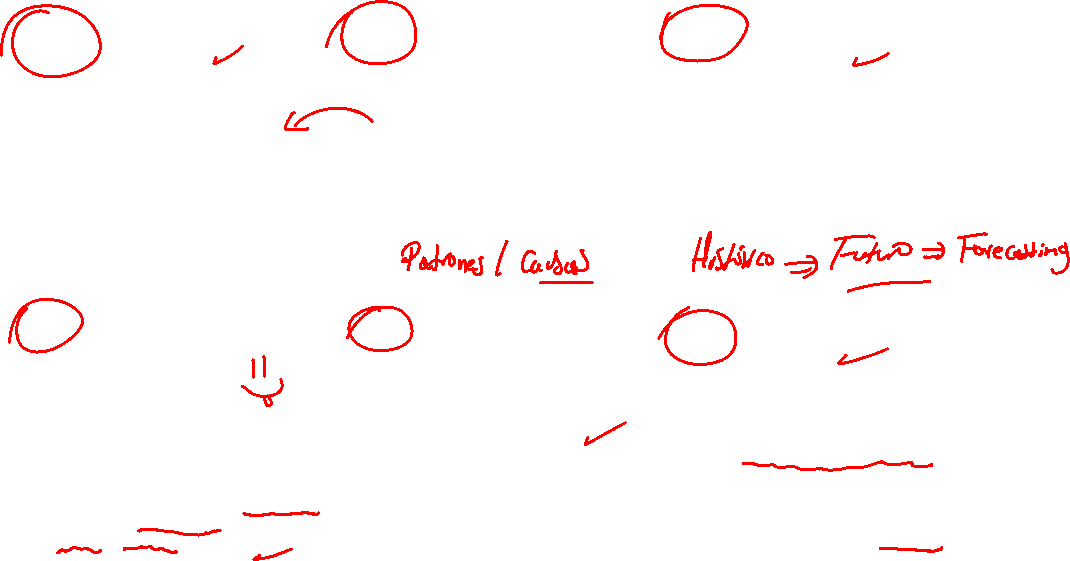 Patrones / Causas
Histórico ⇒ Futuro ⇒ Forecasting